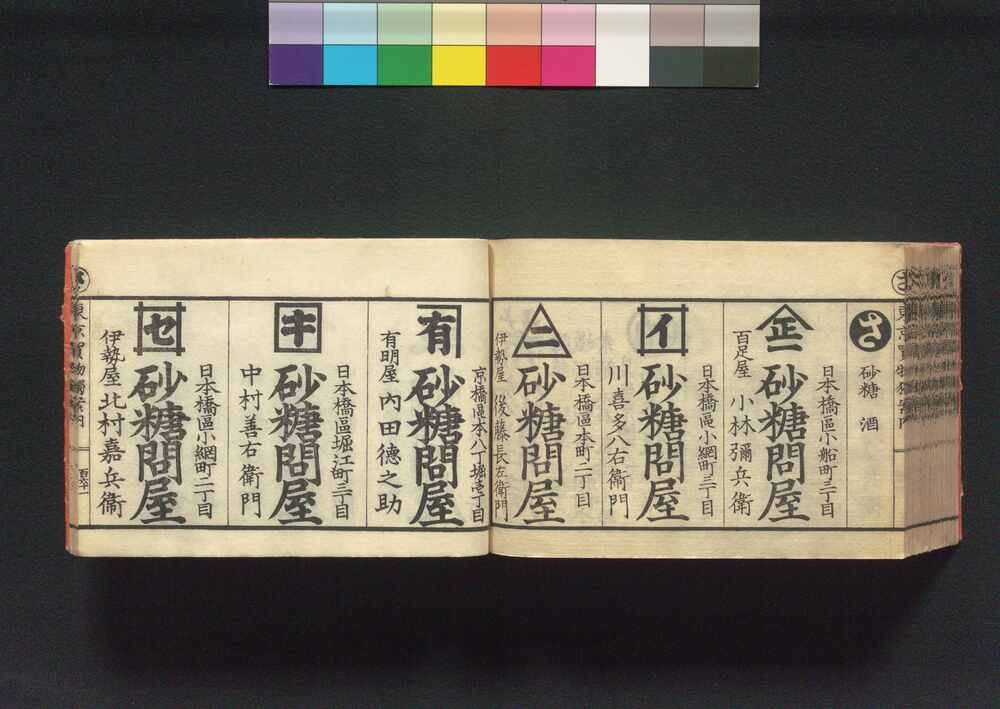 さ
砂糖　酒
正一
日本橋區小船町三丁目
砂糖問屋
百足屋　小林彌兵衛
イ
日本橋區小網町三丁目
砂糖問屋
川喜多八右衛門
二
日本橋區本町二丁目
砂糖問屋
伊勢屋　後藤長左衛門
有
京橋區本八丁堀壱丁目
砂糖問屋
有明屋　內田德之助
キ
日本橋區堀江町三丁目
砂糖問屋
中村善右衛門
セ
日本橋區小網町二丁目
砂糖問屋
伊勢屋北村嘉兵衛
東京買物獨案內